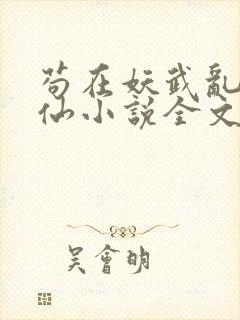 苟在妖武亂
仙小說全文
吳會明